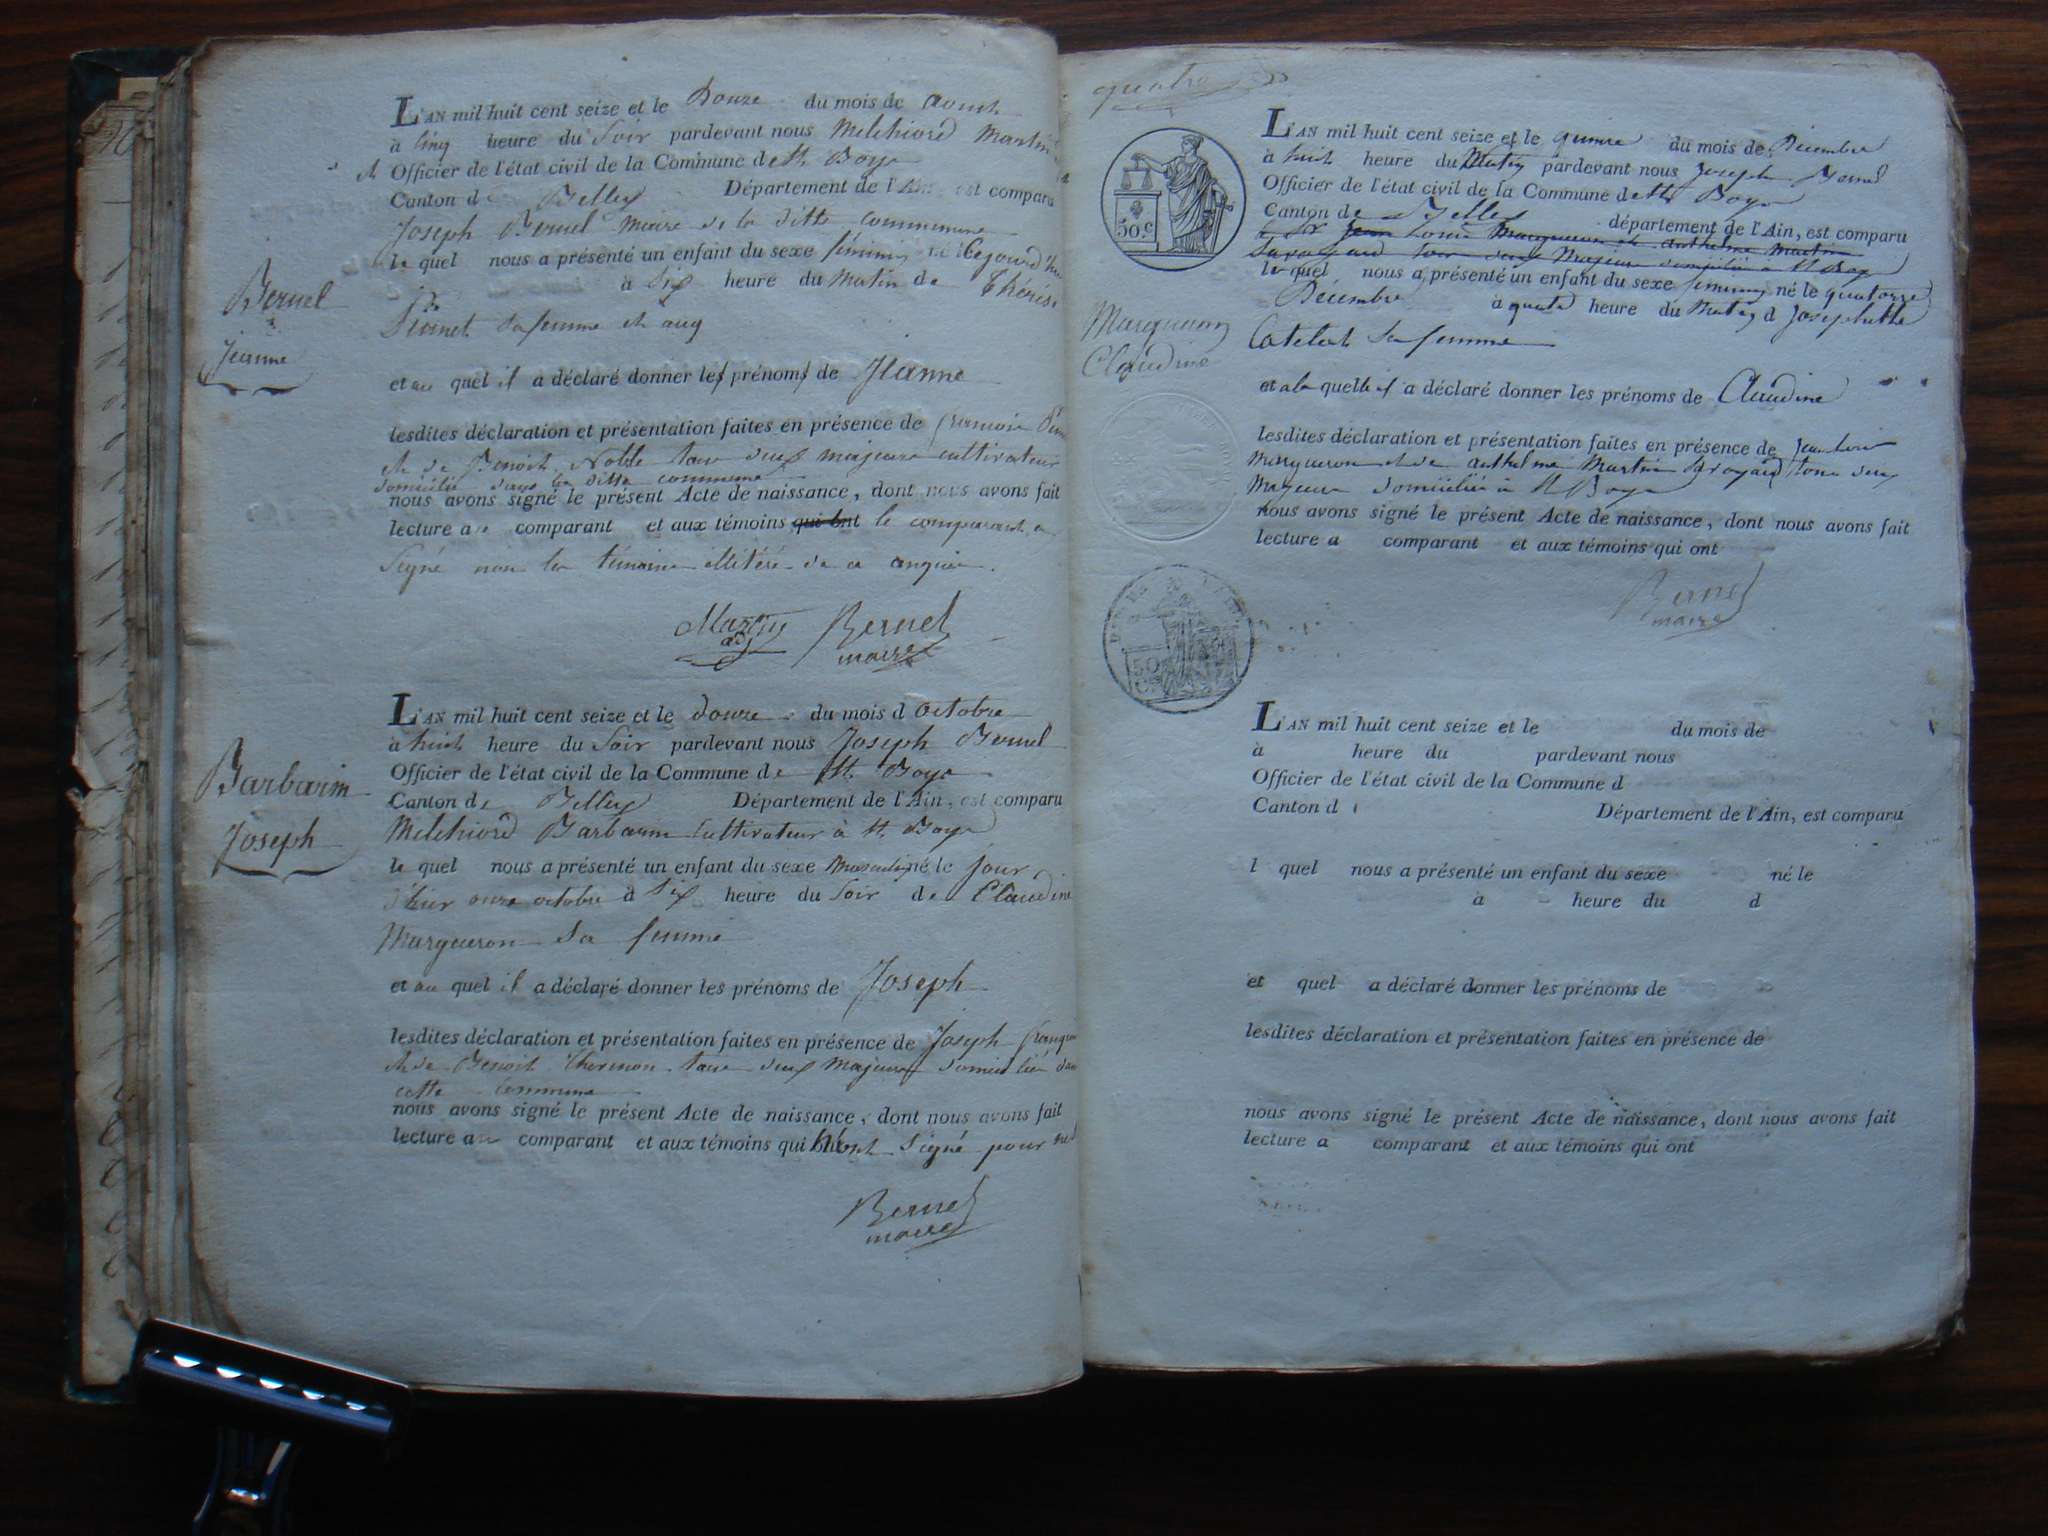 L'AN mil huit cent seize et le Douze du mois de aoust
à cinq heure du Soir pardevant nous Melchiord Martin
Officier de l'état civil de la Commune de St. Boys
Canton de Belley Département de l'Ain, est comparu
Joseph Bernel Maire de la ditte commune
le quel nous a présenté un enfant du sexe féminin né le
à Six heure du Matin de Thérèse
sa femme
Bernel
Jeanne
et au quel il a déclaré donner les prénoms de Jeanne
lesdites déclaration et présentation faites en présence de françois
et de Benoit Noble tous deux majeurs cultivateur
domiciliés dans la ditte commune
nous avons signé le présent Acte de naissance, dont nous avons fait
lecture au comparant et aux témoins qui ont le comparant a
Signé non les témoins de ce
Bernel
maire
L'AN mil huit cent seize et le douze du mois d octobre
à huit heure du Soir pardevant nous Joseph Bernel
Officier de l'état civil de la Commune de St. Boys
Canton de Belley Département de l'Ain, est comparu
Melchiord Barbarin Cultivateur à St. Boys
le quel nous a présenté un enfant du sexe Masculin né le Jour
d'hier onze octobre à six heure du Soir de Claudine
Margueron Sa femme
Barbarin
Joseph
et au quel il a déclaré donner les prénoms de Joseph
lesdites déclaration et présentation faites en présence de Joseph
et de Benoit tous deux Majeurs domiciliés dans
cette Commune
nous avons signé le présent Acte de naissance, dont nous avons fait
lecture au comparant et aux témoins qui N'ont Signé pour
Bernel
maire
quatre
50.C
L'AN mil huit cent seize et le quinze du mois de Décembre
à huit heure du Matin pardevant nous Joseph Bernel
Officier de l'état civil de la Commune de St Boys
Canton de Belley département de l'Ain, est comparu
Jean Louis Margueron et anthelme Martin
Savoyard tous deux Majeurs domiciliés à St Boys
le quel nous a présenté un enfant du sexe feminin né le quatorze
Décembre à quatre heure du Matin d Josephette
Catelat Sa femme
Margueron
Claudine
et a la quelle il a déclaré donner les prénoms de Claudine
lesdites déclaration et présentation faites en présence de Jean Louis
Margueron et de anthelme Martin Savoyard tous deux
Majeurs domiciliés à St Boys
nous avons signé le présent Acte de naissance, dont nous avons fait
lecture a comparant et aux témoins qui ont
Bernel
maire
50
C.
L'AN mil huit cent seize et le du mois de
à heure du pardevant nous
Officier de l'état civil de la Commune d
Canton d Département de l'Ain, est comparu
l quel nous a présenté un enfant du sexe né le
à heure du d
et quel a déclaré donner les prénoms de
lesdites déclaration et présentation faites en présence de
nous avons signé le présent Acte de naissance, dont nous avons fait
lecture a comparant et aux témoins qui ont